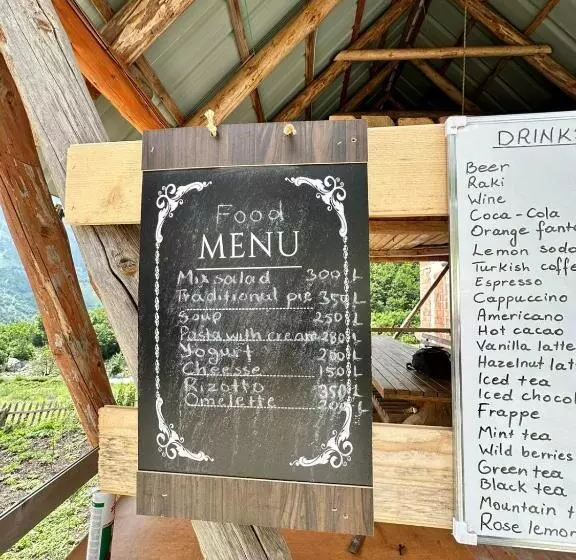 Food
MENU
Mix salad 300 L
Traditional pie 350 L
Soup 250 L
Pasta with cream 280 L
Yogurt 200 L
Cheesse 150 L
Rizotto 350 L
Omelette 200 L
DRINK
Beer
Raki
Wine
Coca-Cola
Orange fant
Lemon soda
Turkish coffe
Espresso
Cappuccino
Americano
Hot cacao
Vanilla latte
Hazelnut lat
Iced tea
Iced chocol
Frappe
Mint tea
Wild berries
Green tea
Black tea
Mountain t
Rose lemon